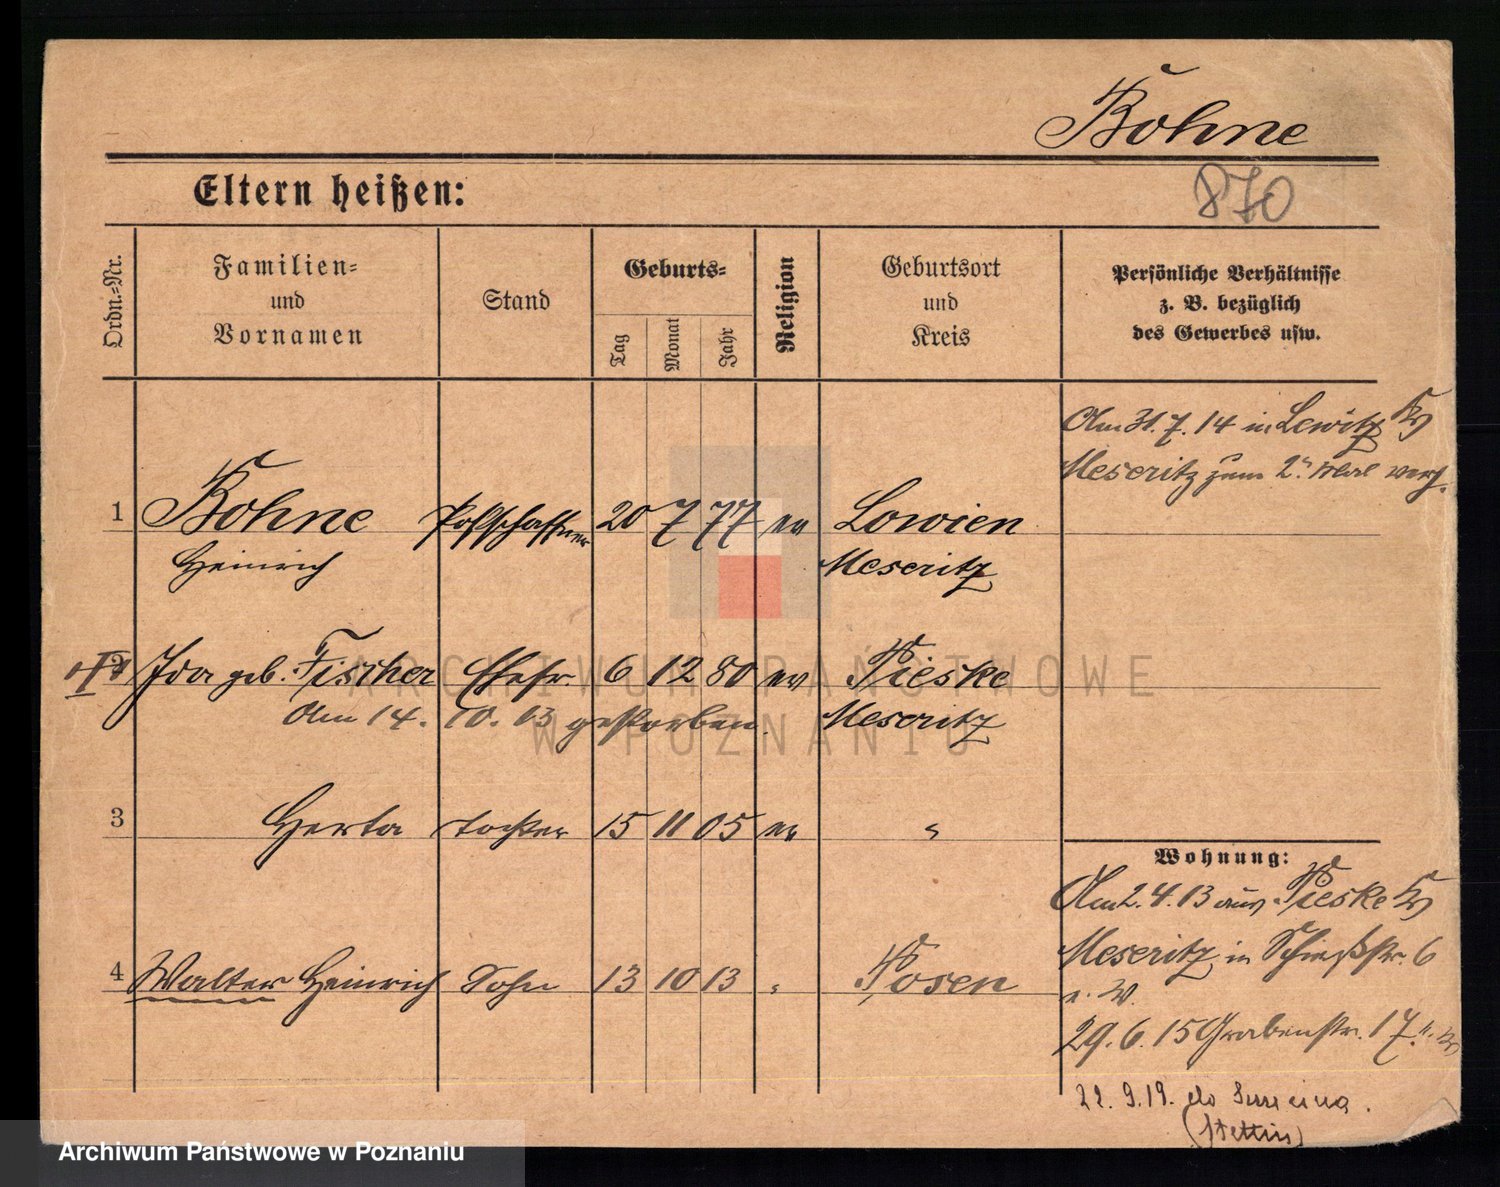 Bohne
870
Eltern heißen:
Ordn.-Nr.
Familien-
und
Vornamen
Stand
Geburts-
Tag
Monat
Jahr
Religion
Geburtsort
und
Kreis
Persönliche Verhältnisse
z. B. bezüglich
des Gewerbes usw.
Am 31.7.14 in Lewitz Kr
Meseritz zum 2. Mal verh.
1 Bohne Postschaffner 20 7 77 ev Lowien
Heinrich Meseritz
2 Ida geb. Fischer Ehefr. 6 12 80 ev Pieske
Am 14. 10. 13 gestorben. Meseritz
3 Herta Tochter 15 11 05 ev "
Wohnung:
Am 2.4.13 aus Pieske Kr
Meseritz in Schießstr. 6
4 Walter Heinrich Sohn 13 10 13 " Posen
29.6.15 Grabenstr. 17
22.9.19. do
(Stettin)
ARCHIWUM PAŃSTWOWE
W POZNANIU
Archiwum Państwowe w Poznaniu